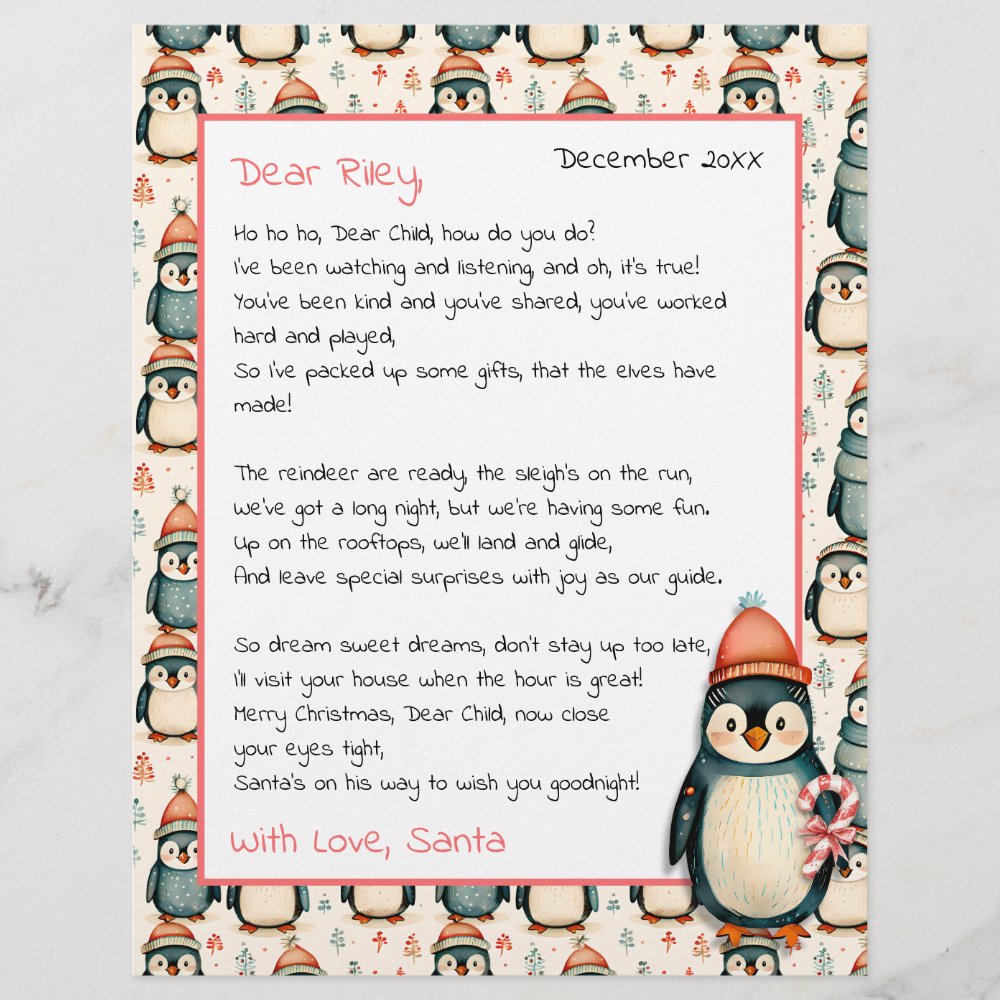 Dear Riley,
December 20XX
Ho ho ho, Dear Child, how do you do?
I've been watching and listening, and oh, it's true!
You've been kind and you've shared, you've worked
hard and played,
So I've packed up some gifts, that the elves have
made!
The reindeer are ready, the sleigh's on the run,
We've got a long night, but we're having some fun.
Up on the rooftops, we'll land and glide,
And leave special surprises with joy as our guide.
So dream sweet dreams, don't stay up too late,
I'll visit your house when the hour is great!
Merry Christmas, Dear Child, now close
your eyes tight,
Santa's on his way to wish you goodnight!
With Love, Santa